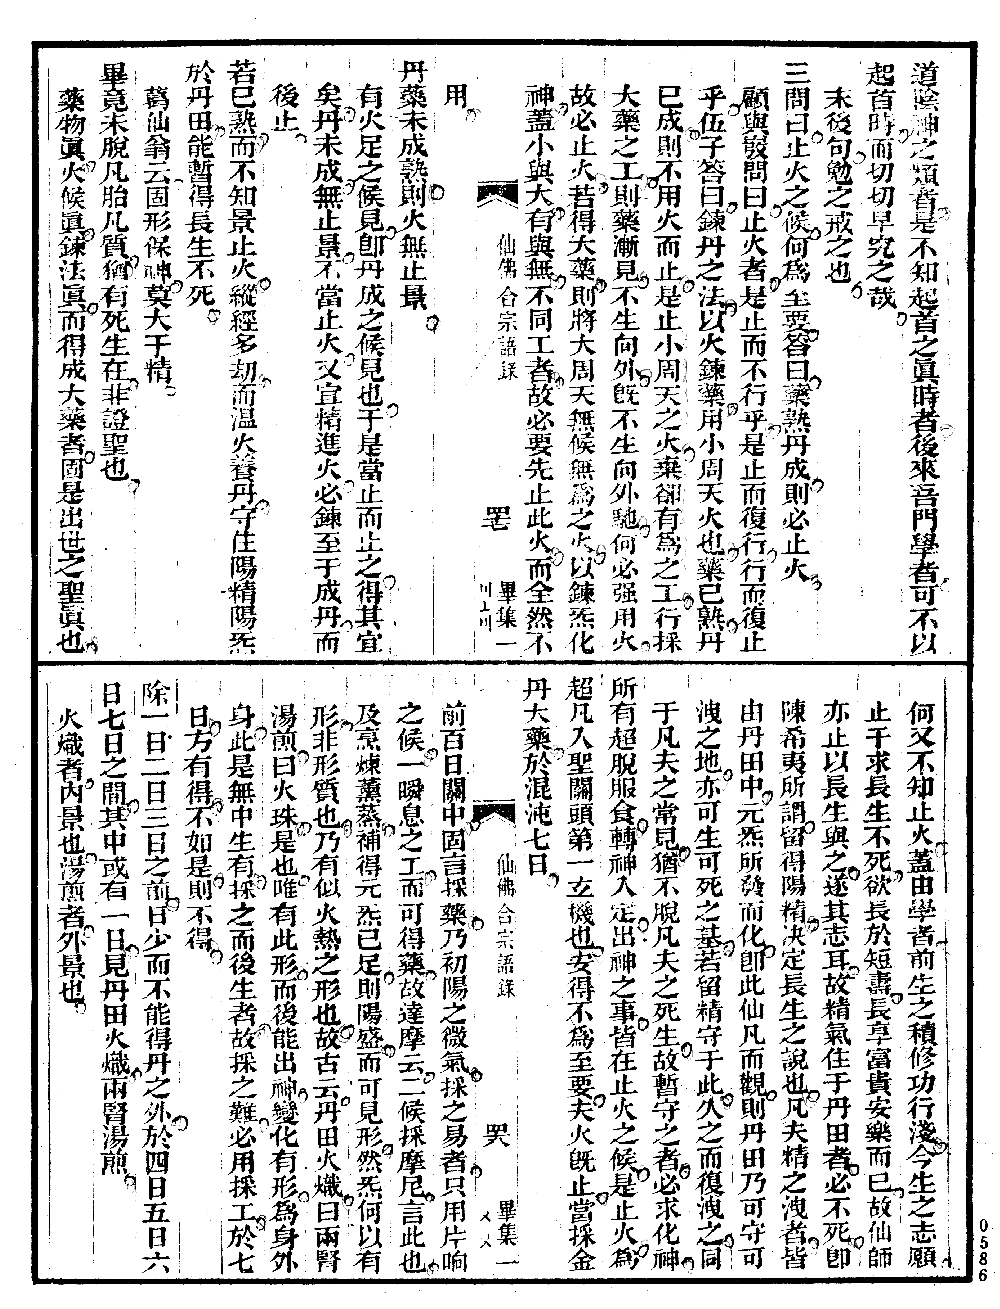 道陰神之類者是不知起首之眞時者後來吾門學者可不以
起首時而切切早究之哉
末後句勉之戒之也
三問曰止火之候何爲至要答曰藥熟丹成則必止火
顧與弢問曰止火者是止而不行乎是止而復行行而復止
乎伍子答曰鍊丹之法以火鍊藥用小周天火也藥已熟丹
已成則不用火而止是止小周天之火棄卻有爲之工行採
大藥之工則藥漸見不生向外旣不生向外馳何必强用火
故必止火若得大藥則將大周天無候無爲之火以鍊炁化
神蓋小與大有與無不同工者故必要先止此火而全然不
用
仙佛合宗語錄
畢集一
丹藥未成熟則火無止景
有火足之候見卽丹成之候見也于是當止而止之得其宜
矣丹未成無止景不當止火又宜精進火必鍊至于成丹而
後止
若已熟而不知景止火縱經多劫而温火養丹守住陽精陽炁
於丹田能暫得長生不死
葛仙翁云固形保神莫大于精
畢竟未脫凡胎凡質猶有死生在非證聖也
藥物眞火候眞鍊法眞而得成大藥者固是出世之聖眞也
何又不知止火蓋由學者前生之積修功行淺今生之志願
止于求長生不死欲長於短壽長享富貴安樂而已故仙師
亦止以長生與之遂其志耳故精氣住于丹田者必不死卽
陳希夷所謂留得陽精決定長生之說也凡夫精之洩者皆
由丹田中元炁所發而化卽此仙凡而觀則丹田乃可守可
洩之地亦可生可死之基若留精守于此久之而復洩之同
于凡夫之常見猶不脫凡夫之死生故暫守之者必求化神
所有超脫服食轉神入定出神之事皆在止火之候是止火爲
超凡入聖關頭第一玄機也安得不爲至要夫火旣止當採金
丹大藥於混沌七日
仙佛合宗語錄
畢集一
前百日關中固言採藥乃初陽之微氣採之易者只用片晌
之候一瞬息之工而可得藥故達摩云二候採摩尼言此也
及烹煉薰蒸補得元炁已足則陽盛而可見形然炁何以有
形非形質也乃有似火熱之形也故古云丹田火熾曰兩腎
湯煎曰火珠是也唯有此形而後能出神變化有形爲身外
身此是無中生有採之而後生者故採之難必用採工於七
日方有得不如是則不得
除一日二日三日之前日少而不能得丹之外於四日五日六
日七日之間其中或有一日見丹田火熾兩腎湯煎
火熾者內景也湯煎者外景也
0586